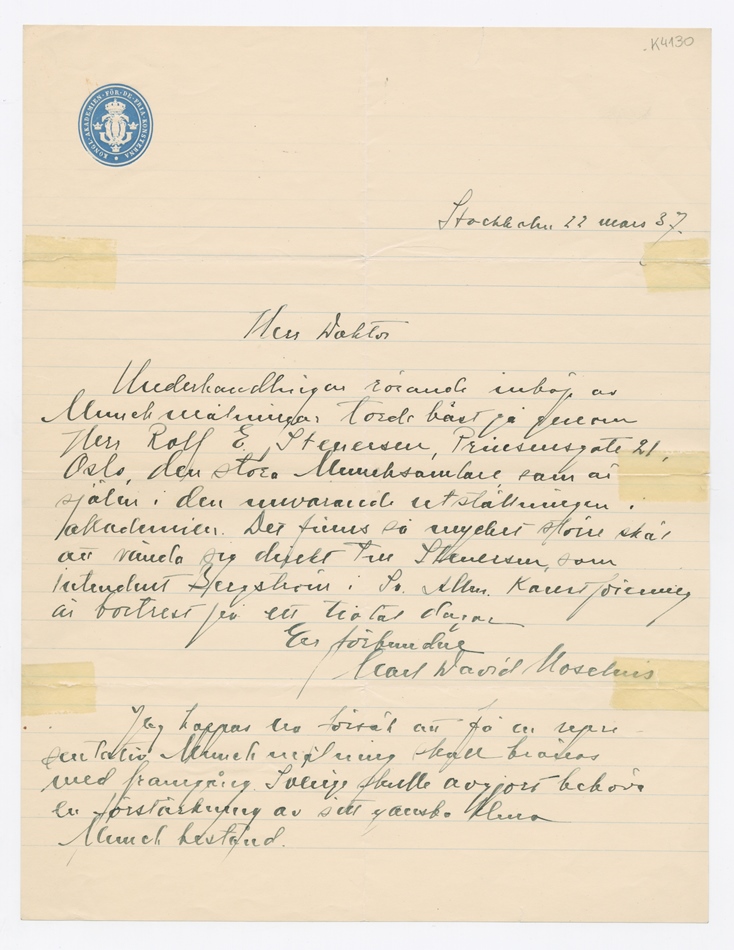 K4130
KONGL·AKADEMIEN·FÖR·DE·FRIA·KONSTERNA
Stockholm 22 mars 37.
Herr Doktor
Underhandlingar rörande inköp av
Munchmålningar torde bäst gå genom
Herr Rolf E. Stenersen, Prinsensgate 21,
Oslo, den stora Munchsamlare som är
själen i den nuvarande utställningen i
akademien. Det finns så mycket större skäl
att vända sig direkt till Stenersen, som
Intendent Bergström i Sv. Allm. Konstförening
är bortrest på ett tiotal dagar
Er förbundne
Carl David Moselius
Jag hoppas Ert försök att få en repre
sentativ Munchmålning skall krönas
med framgång. Sverige skulle avgjort behöva
en förstärkning av sitt ganska klena
Munch bestånd.